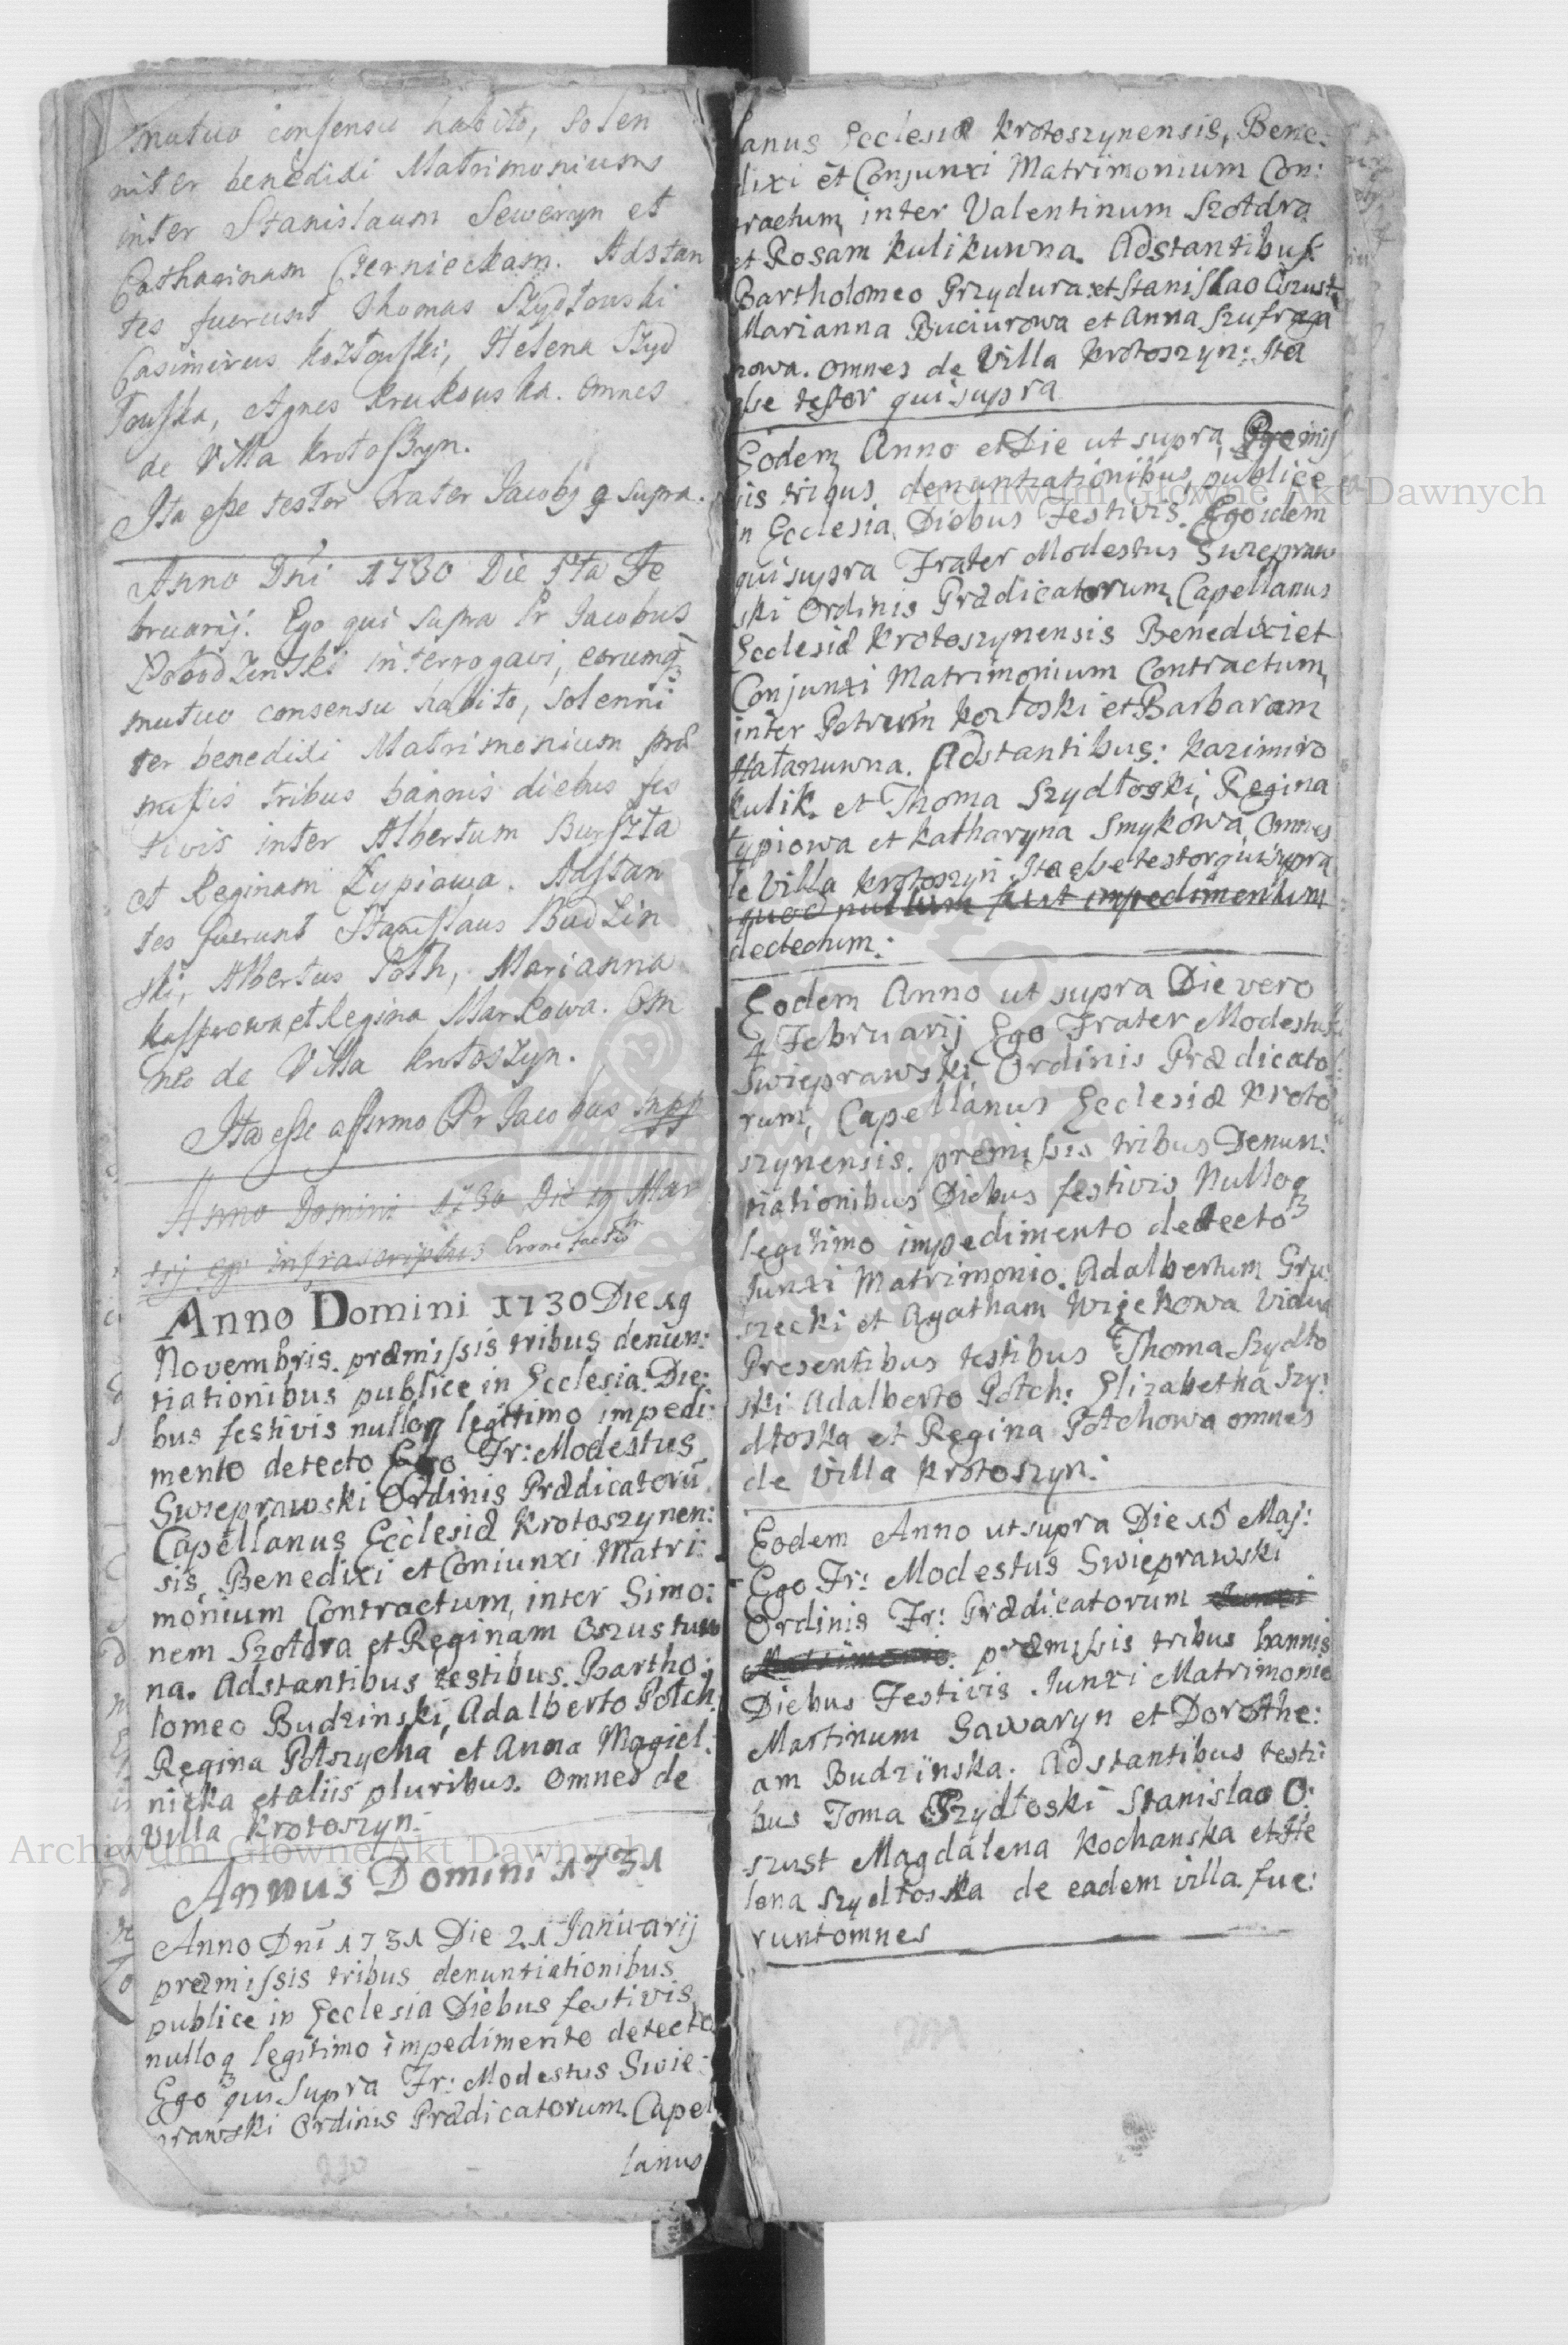 mutuo consensu habito, solen
niter benedixi Matrimonium
inter Stanislaum Seweryn et
Catharinam Czernieckam. Adstan
tes fuerunt Thomas Szydłouski
Casimirus Kozłouski, Helena Szyd
łouska, Agnes Krukouska. omnes
de Villa Krotoszyn.
Ita esse testor Frater Jacobg q supra.
Anno Dni 1730 Die 5ta Fe
bruarij. Ego qui supra Fr Jacobus
interrogavi, eorumq3
mutuo consensu habito, solenni
ter benedixi Matrimonium præ
missis tribus bannis diebus fes
tivis inter Albertum Burszta
et Reginam Łypiowa. Adstan
tes fuerunt Stanislaus Budzin
ski, Albertus Poth, Marianna
Kasprowa, et Regina Markowa. Om
nes de Villa Krotoszyn.
Ita esse affirmo Fr Jacobus mpp
Anno Domini 1730 Die 19 Mar
tij ego infrascriptus Errore factu
Anno Domini 1730 Die 19
Novembris. præmissis tribus denun:
tiationibus publice in Ecclesia Die:
bus festivis nulloq legittimo impedi:
mento detecto Ego Fr: Modestus
Swieprawski Ordinis Prædicatorū
Capellanus Ecclesiæ Krotoszynen:
sis, Benedixi et Coniunxi Matri:
monium Contractum, inter Simo:
nem Szołdra et Reginam Oszustuw
na. Adstantibus testibus. Bartho:
lomeo Budzinski, Adalberto Potch
Regina Potszycha et Anna Magiel:
nicka et aliis pluribus. omnes de
Villa Krotoszyn.
Annus Domini 1731
Anno Dni 1731 Die 21 Januarij
præmissis tribus denuntiationibus
publice in Ecclesia Diebus festivis,
nulloq3 legitimo impedimento detecto
Ego qui supra Fr: Modestus Swie:
prawski Ordinis Prædicatorum. Capel
lanus
lanus Ecclesiæ Krotoszynensis, Bene:
dixi et Conjunxi Matrimonium Con:
tractum, inter Valentinum Szołdra
et Rosam Kulikuwna. Adstantibus
Bartholomeo Grzydura: et Stanislao Oszust
Marianna Buciurowa et Anna Szufraga
nowa. omnes de Villa Krotoszyn: Ita
esse testor qui supra
Eodem Anno et Die ut supra, Præmis
sis tribus denuntiationibus, publice
in Ecclesia Diebus Festivis. Ego idem
qui supra Frater Modestus Swiepraw
ski Ordinis Prædicatorum, Capellanus
Ecclesiæ Krotoszynensis Benedixi et
Conjunxi Matrimonium Contractum,
inter Petrum Kozłoski et Barbaram
Hałanuwna. Adstantibus: Kazimiro
Kulik. et Thoma Szydłoski, Regina
Łypiowa et Katharyna Smykowa, Omnes
de Villa Krotoszyn Ita esse testor qui supra
quod nullum fuit impedimentum
dectectum:
Eodem Anno ut supra Die vero
4 Februarij Ego Frater Modestus
Swieprawski, Ordinis Prædicato
rum, Capellanus Ecclesiæ Kroto
szynensis. præmissis tribus Denun:
tiationibus Diebus festivis Nulloq3
legitimo impedimento detecto
Junxi Matrimonio. Adalbertum Gru:
szecki et Agatham Wiąckowa Vidua
Presentibus testibus Thoma Szydło
ski Adalberto Potch: Elizabetha Szy:
dłoska et Regina Potchowa omnes
de Villa Krotoszyn:
Eodem Anno ut supra Die 15 Maj:
Ego Fr: Modestus Swieprawski
Ordinis Fr: Prædicatorum Junxi
Matrimonio. præmissis tribus bannis
Diebus Festivis. Junxi Matrimonio
Martinum Sawaryn et Dorothe:
am Budzinska. Adstantibus testi
bus Toma Szydłoski Stanislao O:
szust Magdalena Kochanska et He
lena Szydłoska de eadem villa. fue:
runt omnes
Archiwum Główne Akt Dawnych
Archiwum Główne Akt Dawnych